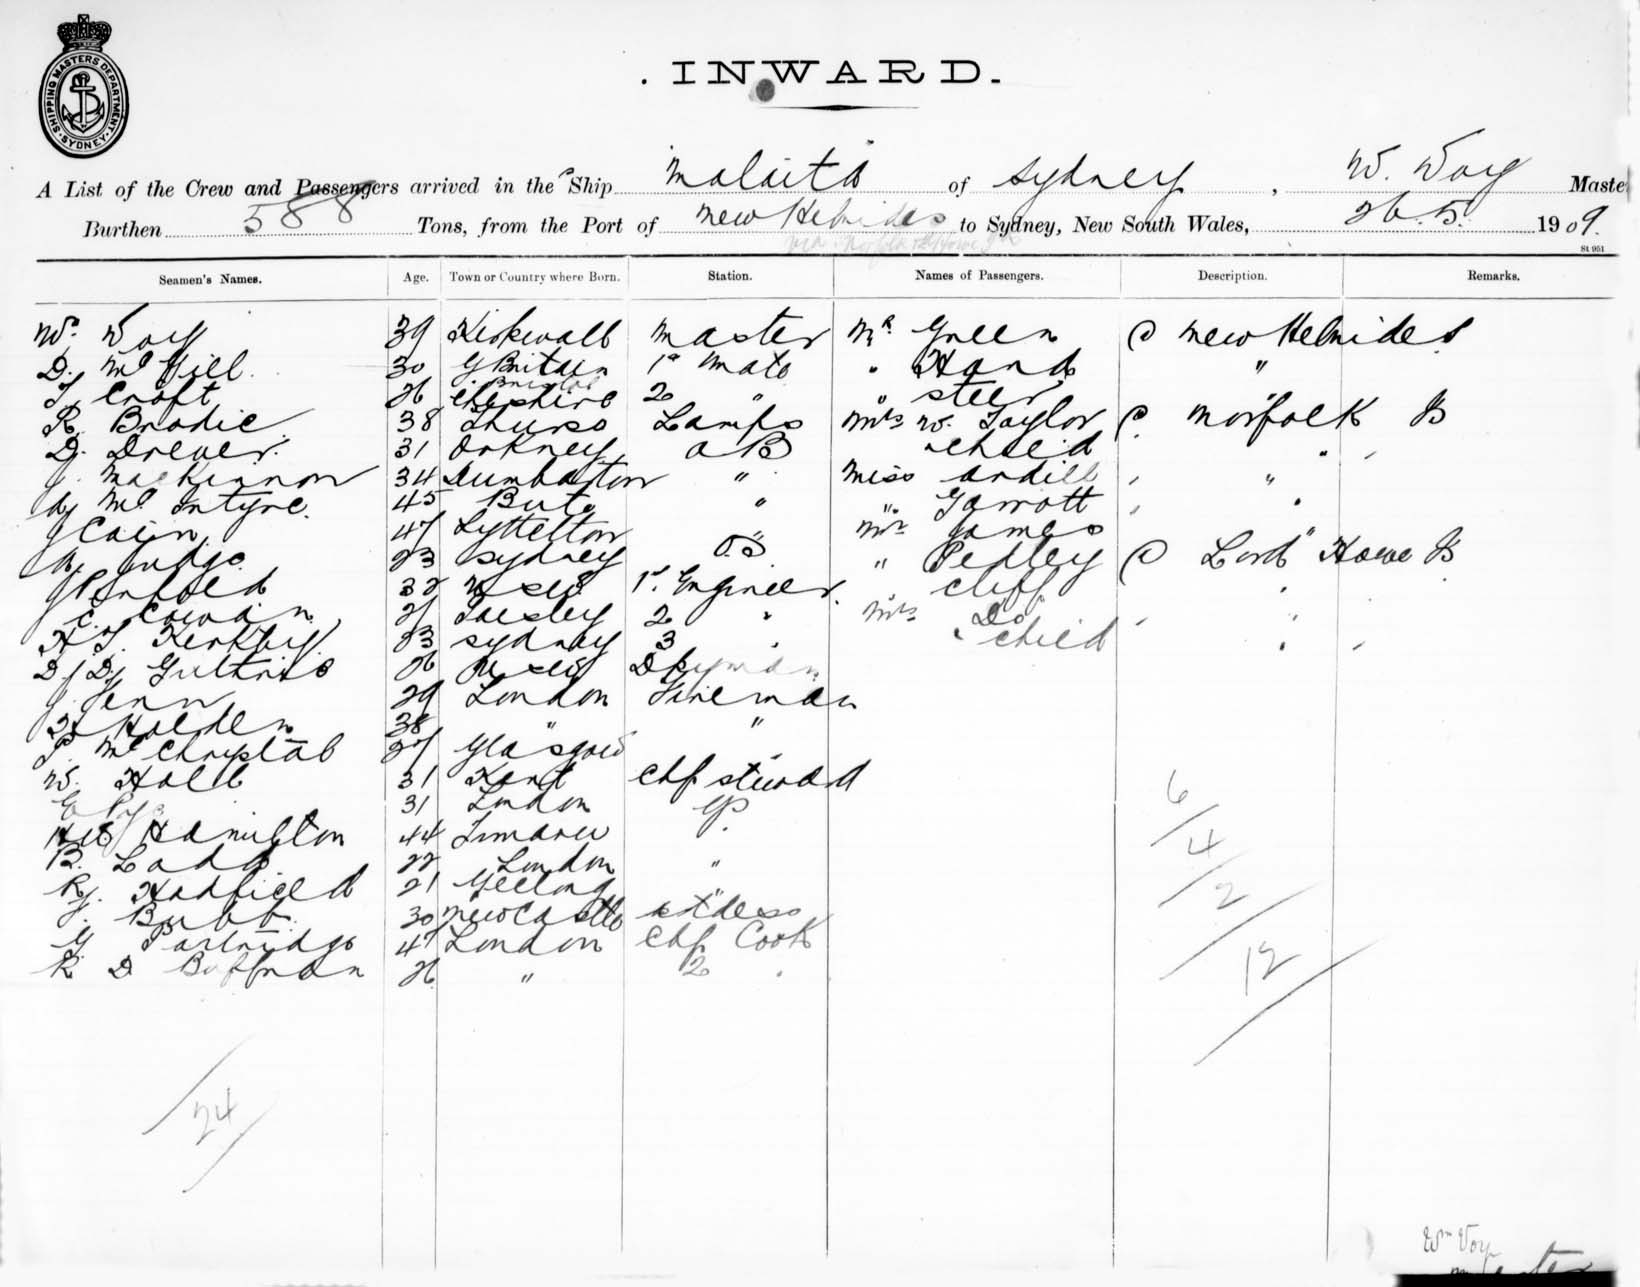 SHIPPING MASTERS DEPARTMENT. SYDNEY
. INWARD.
A List of the Crew and Passengers arrived in the Ship Malaita of Sydney, W. Voy Maste
Burthen 588 Tons, from the Port of New Hebrides to Sydney, New South Wales, 26.5. 1909.
via Norfolk & Howe Is
St 951
Seamen's Names. Age. Town or Country where Born. Station. Names of Passengers. Description. Remarks.
Wm. Voy 39 Kirkwall Master Mr. Green C New Hebrides
D. McGill 30 G Britain 1st Mate " Hand "
Croft 26 Cheshire 2 " " Steer
R. Brodie 38 Thurso Lamps Mrs W. Taylor C. Norfolk Is
D. Drever 31 Orkney AB child "
J. MacKinnon 34 Dumbarton " Miss Ardill "
McIntyre 45 Bute " " Garrott "
J Cain 47 Lyttelton " Mr James "
Judge 23 Sydney OS " Pedley C Lord Howe Is
J Penfold 32 1st. Engineer Cliff
C. Cowan 27 Paisley 2 " Mrs Do
H J. Kerkby 23 Sydney 3 " " child
D J D Guthrie 26 Dkyman
J Venn 29 London Fireman
Holden 38 " "
P. McChrystal 27 Glasgow
W. Hall 31 Kent Chf Steward
31 London
Hamilton 44 Timaru
B. Ladd 22 London "
R J. Hadfield 21 Geelong "
J. Bubb 30 Newcastle stdess
G Partridge 47 London Chf Cook
R D Boffman 26 " 2 "
6
4
2
12
24
Wm Voy
Master